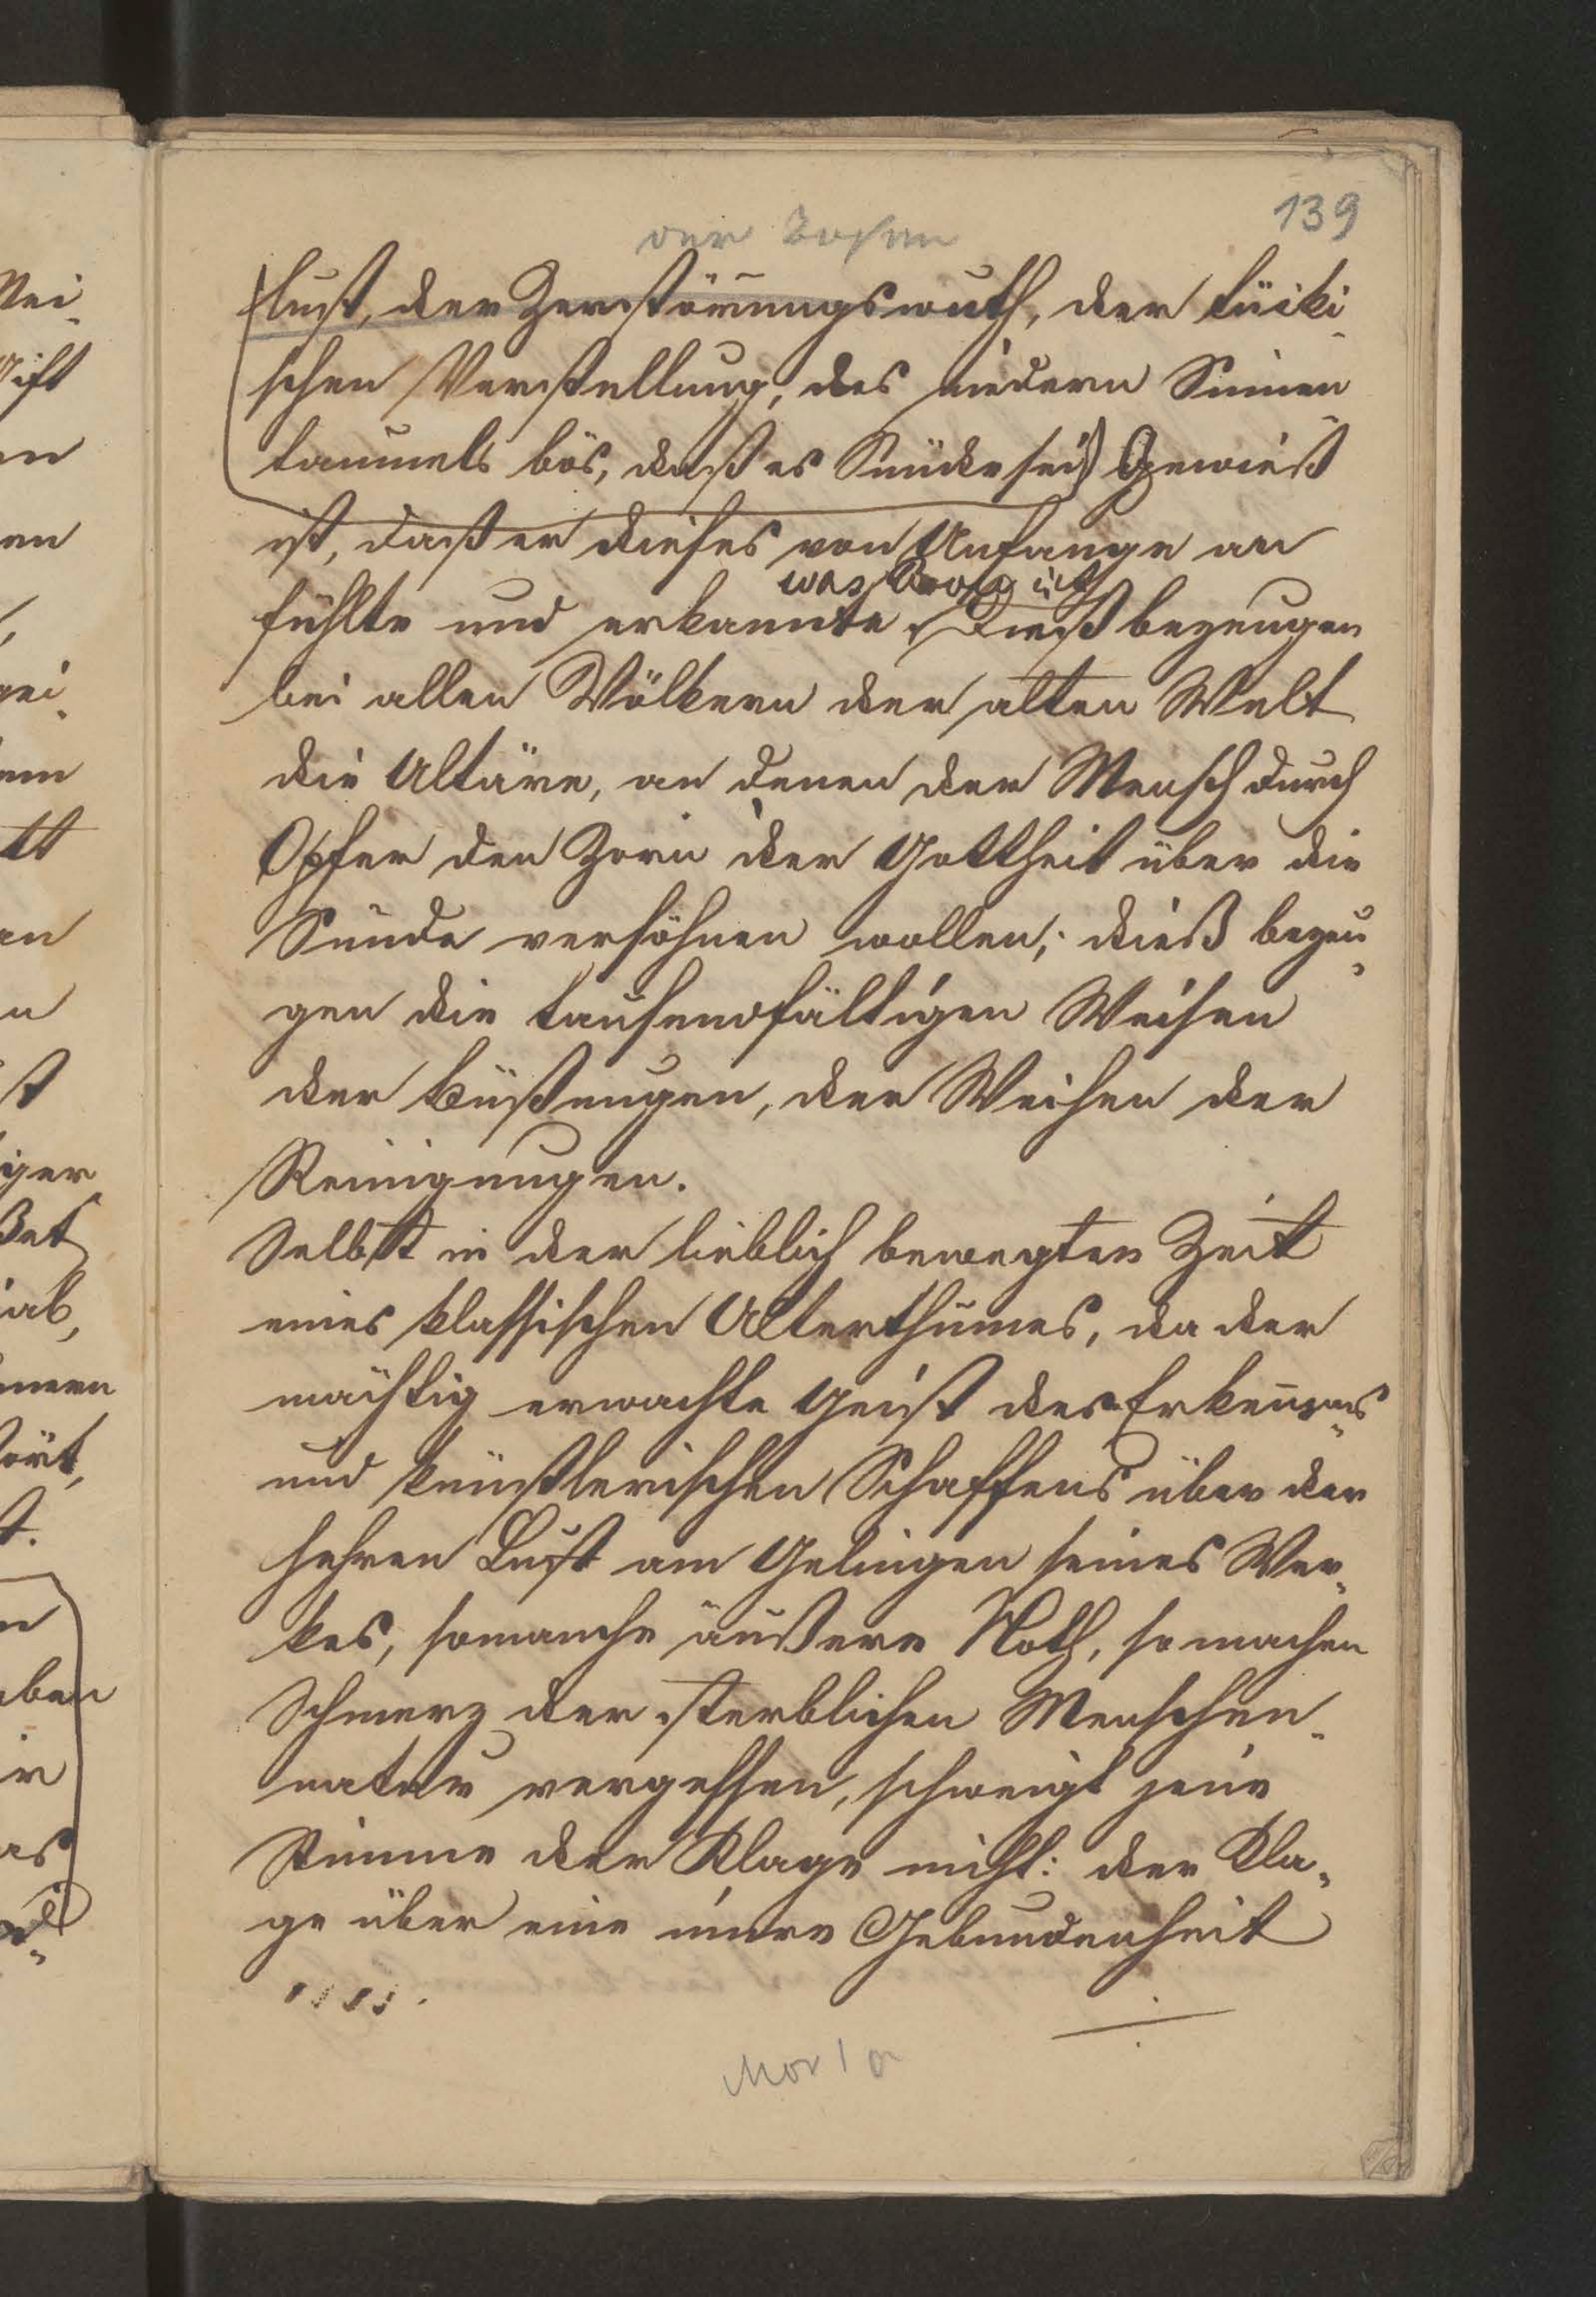 139
lust, der Zerstörungswuth, der tücki-
schen Verstellung, des niedern Sinnen
taumels bös, daß es Sünde sei) Gewiß
ist, daß er dieses von Anfange an
was Bös ist
fühlte und erkannte. Dieß bezeugen
bei allen Völkern der alten Welt
die Altäre, an denen der Mensch durch
Opfer den Zorn der Gottheit über die
Sünde versöhnen wollen; dieß bezeu-
gen die tausendfältigen Weisen
der Büßungen, der Weihen der
Reinigungen.
Selbst in der lieblich bewegten Zeit
eines klassischen Alterthumes, da der
mächtig erwachte Geist des Erkennens
und künstlerischen Schaffens über der
hehren Lust am Gelingen seines Wer-
kes, so manche äußere Noth, so machen
Schmerz der sterblichen Menschen-
natur vergessen, schweigt jene
Stimme der Klage nicht: der Kla-
ge über eine innre Gebundenheit